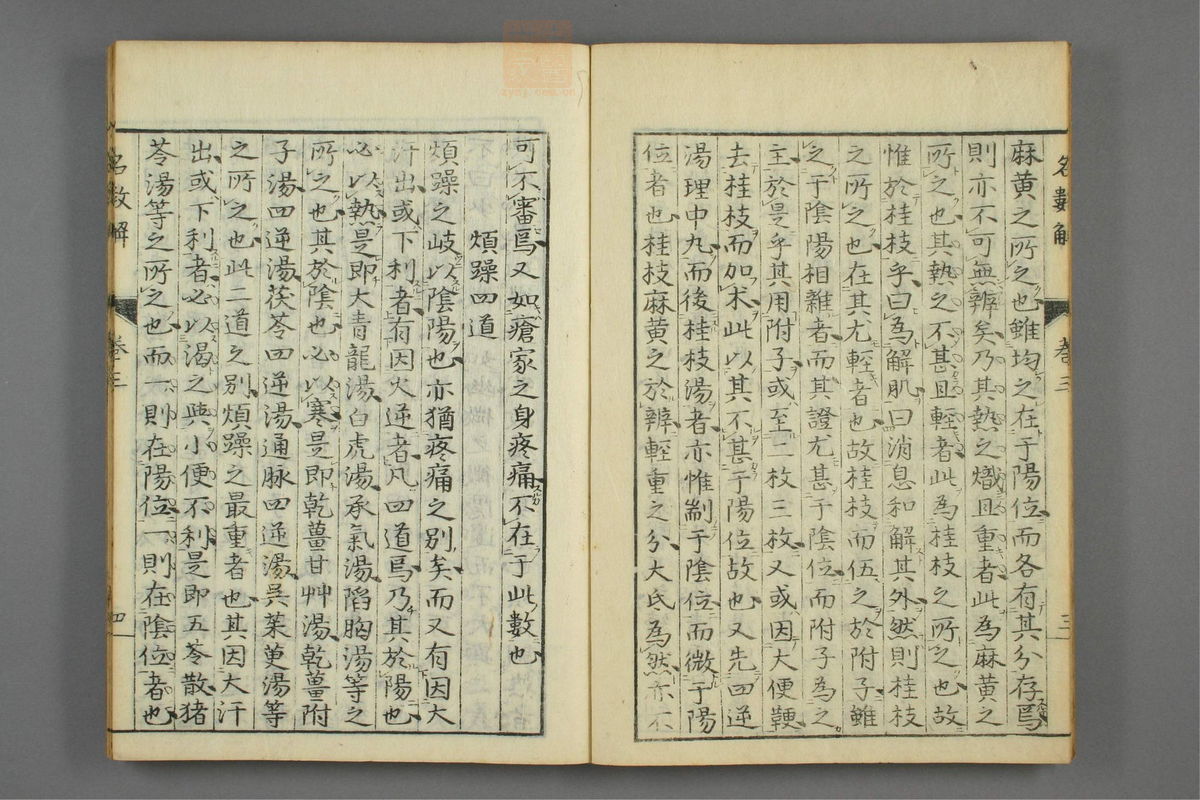 名數解
卷三
三
麻黃之所之也雖均之在于陽位而各有其分存焉
則亦不可無辨矣乃其熱之熾且重者此為麻黃之
所之也其熱之不甚且輕者此為桂枝之所之也故
惟於桂枝乎曰為解肌曰消息和解其外然則桂枝
之所之也在其尤輕者也故桂枝而伍之於附子雖
之于陰陽相雜者而其證尤甚于陰位而附子為之
主於是乎其用附子或至二枚三枚又或因大便鞕
去桂枝而加朮此以其不甚于陽位故也又先四逆
湯理中丸而後桂枝湯者亦惟制于陰位而微于陽
位者也桂枝麻黃之於辨輕重之分大氐為然亦不
可不審焉又如瘡家之身疼痛不在于此數也
煩躁四道
煩躁之岐以陰陽也亦猶疼痛之別矣而又有因大
汗出或下利者有因火逆者凡四道焉乃其於陽也
必以熱是即大青龍湯白虎湯承氣湯陷胸湯等之
所之也其於陰也必以寒是即乾薑甘艸湯乾薑附
子湯四逆湯茯苓四逆湯通脉四逆湯吳茱萸湯等
之所之也此二道之別煩躁之最重者也其因大汗
出或下利者必以渴之與小便不利是即五苓散猪
苓湯等之所之也而一則在陽位一則在陰位者也
名數解
卷三
四